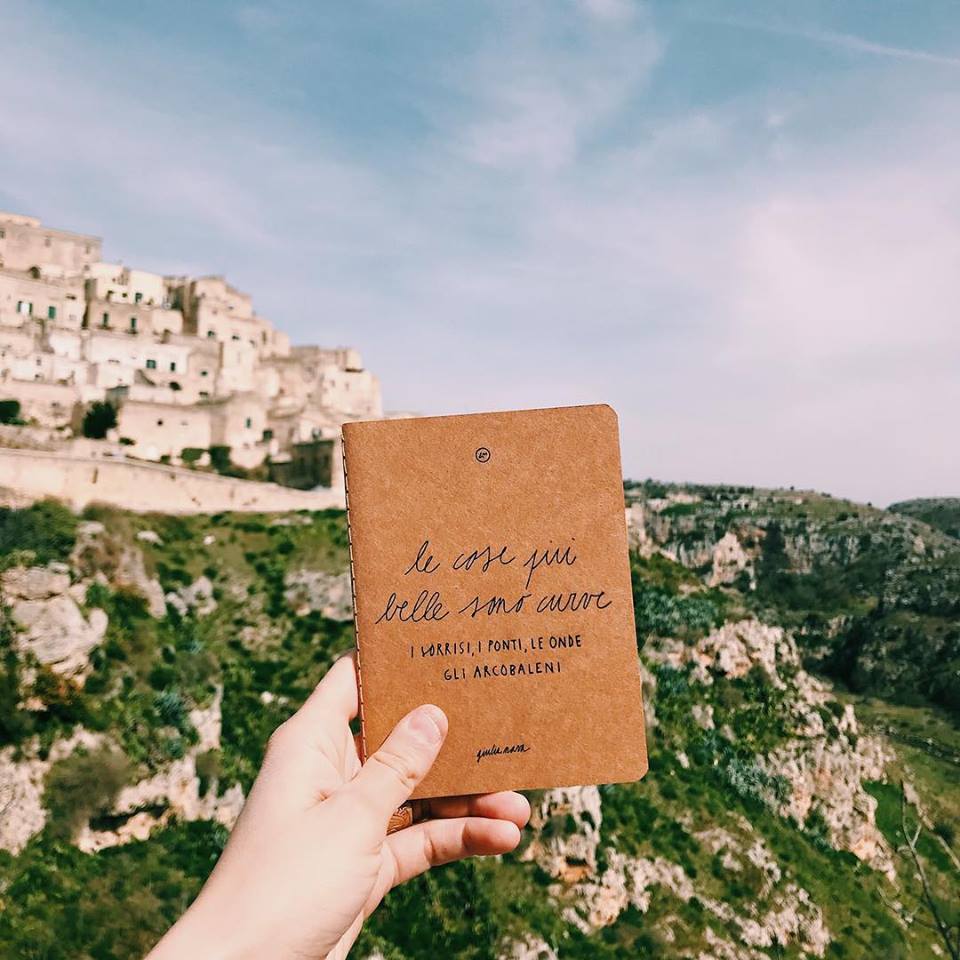 le cose più
belle sono curve
I SORRISI, I PONTI, LE ONDE
GLI ARCOBALENI